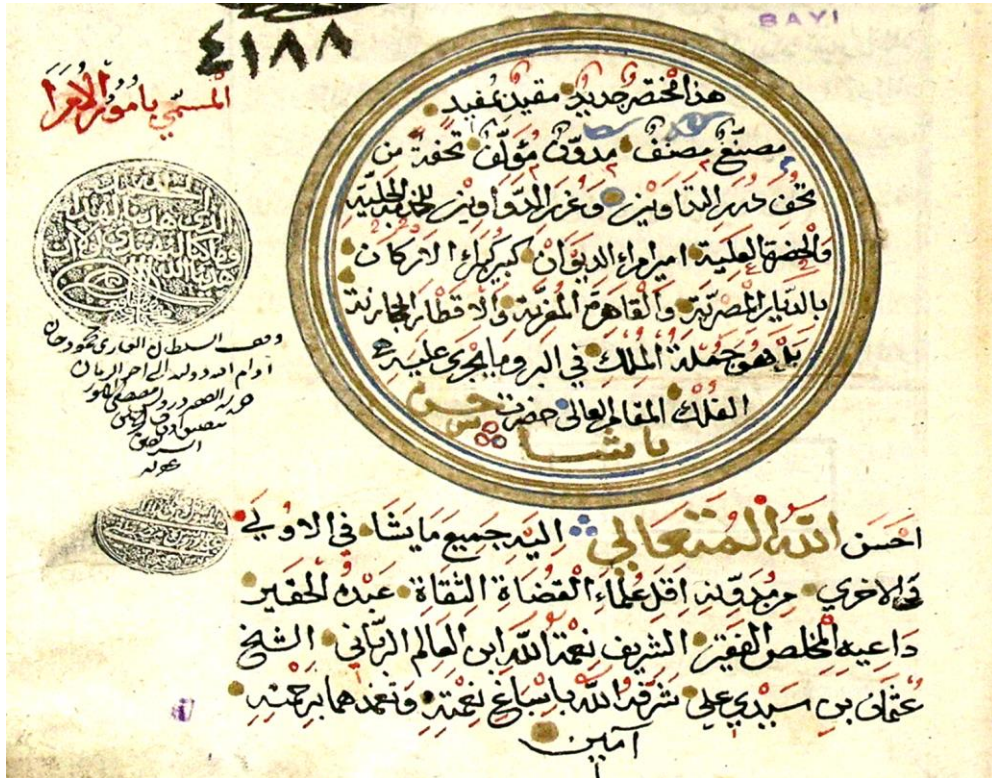 BAYI
٤١٨٨
المسمى بامور الامرا
هذا مختصر جديد مقيد مفيد
مصنع مصنف مدون مؤلف تحفة من
تحف درر التداوين وغرر الدواوين للخدمة الجلية
والحضرة العلية امير امراء الديوان كبير كبراء الاركان
بالديار المصرية والقاهرة المعزية والاقطار الحجازية
بل هو جملة الملك في البر وما يجرى عليه
الفلك المقام العالى حضرت حسن
باشا
الحمد لله الذى هدانا لهذا وما كنا لنهتدى لولا ان هدانا الله
وقف السلطان الغازى محمود خان
ادام الله دولته الى اخر الزمان
احسن الله المتعالي اليه جميع ما يشا في الاولي
في الاخري من مدونه اقل علماء القضاة الثقاة عبده الحقير
داعيه المخلص الفقير الشريف نعمة الله ابن العالم الرباني الشيخ
عثمان بن سيدي علي شرفه الله باسباغ نعمته وتغمدهما برحمته
آمين